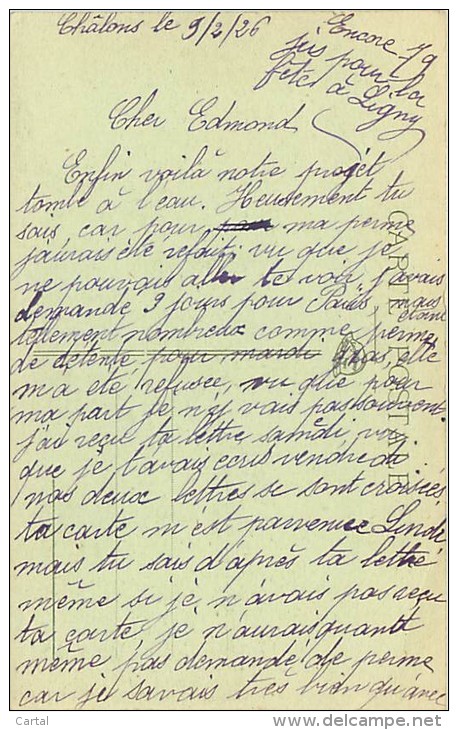 Châlons le 9/2/26
Encore 79
jrs pour la
fête à Ligny
Cher Edmond
Enfin voilà notre projet
tombe à l'eau. Heusement tu
sais car pour ma perme
j'aurais été refait. vu que je
ne pouvais te voir, j'avais
demandé 9 jours pour Paris mais étant
tellement nombreux comme perme
de détente pour mardi gras, elle
m'a été refusée, vu que pour
ma part je n'y vais pas souvent.
j'ai reçue ta lettre samedi, vu
que je t'avais ecris vendredi
nos deux lettres se sont croisées
ta carte m'est parvenue Lundi
mais tu sais d'après ta lettre
même si je n'avais pas reçu
ta carte, je n'aurais quant
même pas demandé de perme
car je savais très bien qu'avec
CARTE POSTALE
Cartal
www.delcampe.net